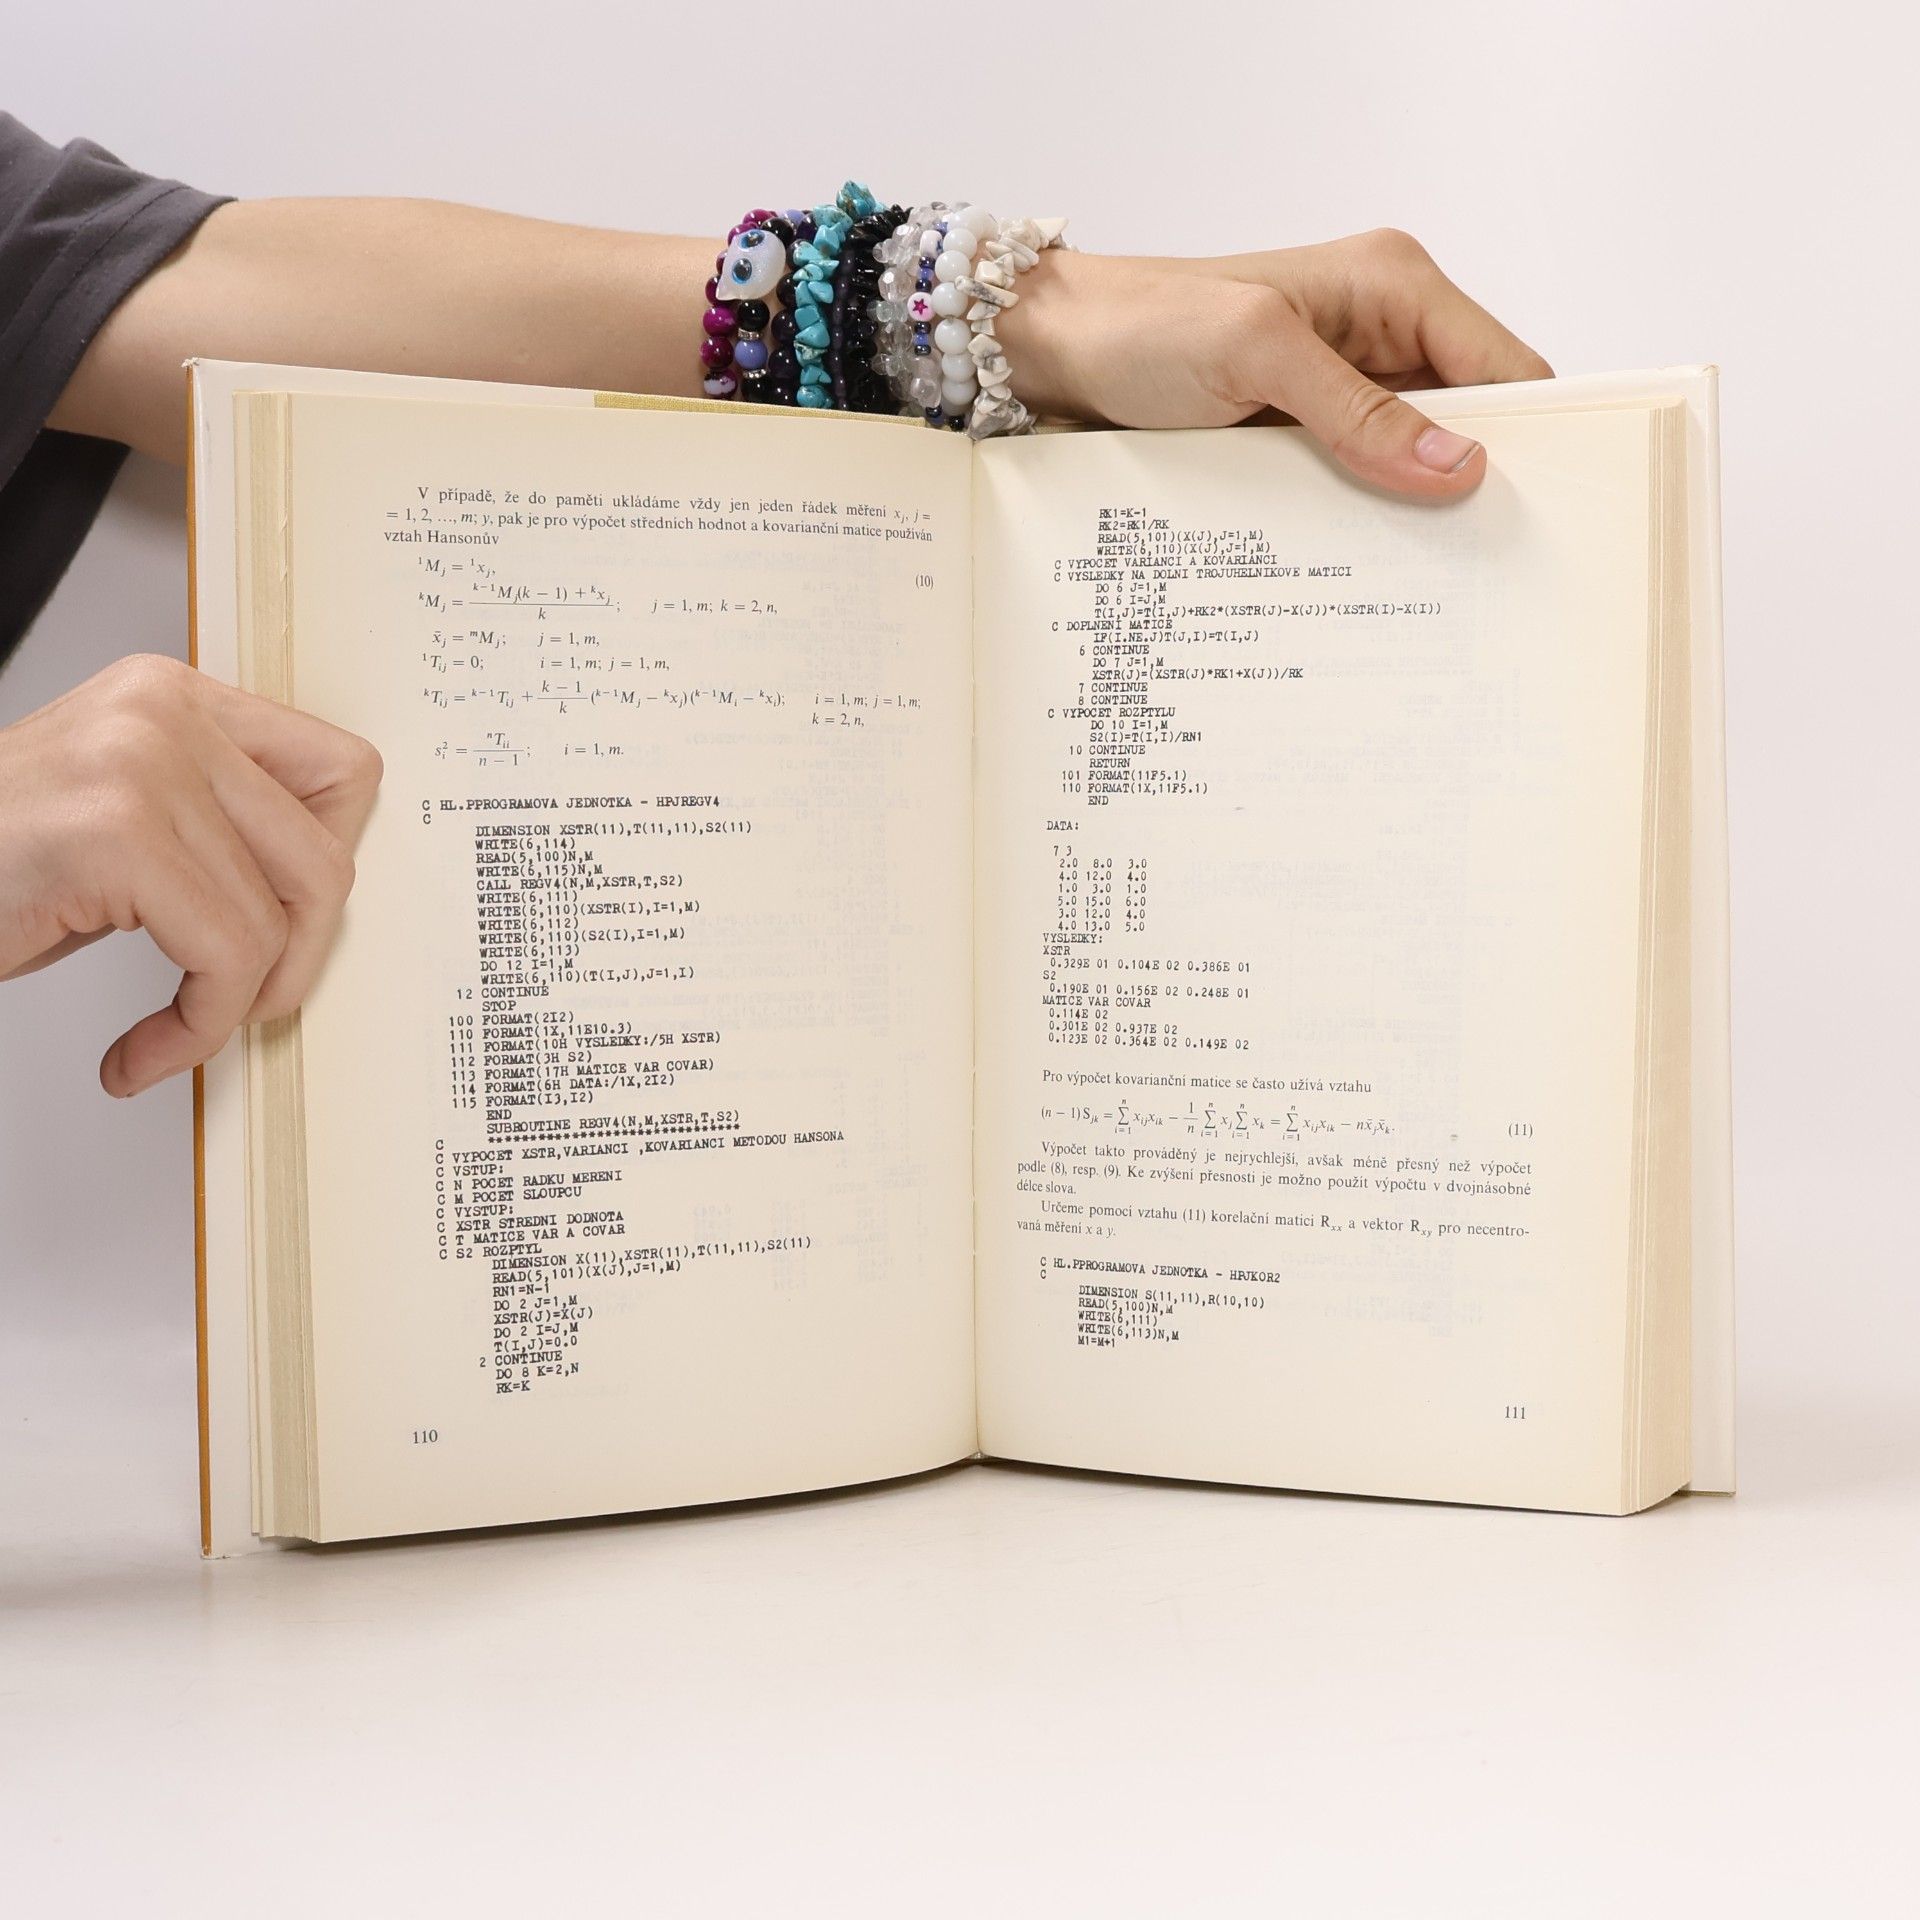 V případě, že do paměti ukládáme vždy jen jeden řádek měření xⱼ, j =
= 1, 2, ..., m; y, pak je pro výpočet středních hodnot a kovarianční matice používán
vztah Hansonův
¹Mⱼ = ¹xⱼ, (10)
ᵏMⱼ = (ᵏ⁻¹Mⱼ(k − 1) + ᵏxⱼ) / k; j = 1, m; k = 2, n,
x̄ⱼ = ᵐMⱼ; j = 1, m,
¹Tᵢⱼ = 0; i = 1, m; j = 1, m,
ᵏTᵢⱼ = ᵏ⁻¹Tᵢⱼ + (k − 1)/k (ᵏ⁻¹Mⱼ − ᵏxⱼ)(ᵏ⁻¹Mᵢ − ᵏxᵢ); i = 1, m; j = 1, m;
k = 2, n,
sᵢ² = ⁿTᵢᵢ / (n − 1); i = 1, m.
C HL.PPROGRAMOVA JEDNOTKA - HPJREGV4
C
DIMENSION XSTR(11),T(11,11),S2(11)
WRITE(6,114)
READ(5,100)N,M
WRITE(6,115)N,M
CALL REGV4(N,M,XSTR,T,S2)
WRITE(6,111)
WRITE(6,110)(XSTR(I),I=1,M)
WRITE(6,112)
WRITE(6,110)(S2(I),I=1,M)
WRITE(6,113)
DO 12 I=1,M
WRITE(6,110)(T(I,J),J=1,I)
12 CONTINUE
STOP
100 FORMAT(2I2)
110 FORMAT(1X,11E10.3)
111 FORMAT(10H VYSLEDKY:/5H XSTR)
112 FORMAT(3H S2)
113 FORMAT(17H MATICE VAR COVAR)
114 FORMAT(6H DATA:/1X,2I2)
115 FORMAT(I3,I2)
END
SUBROUTINE REGV4(N,M,XSTR,T,S2)
C ******************************
C VYPOCET XSTR,VARIANCI ,KOVARIANCI METODOU HANSONA
C VSTUP:
C N POCET RADKU MERENI
C M POCET SLOUPCU
C VYSTUP:
C XSTR STREDNI DODNOTA
C T MATICE VAR A COVAR
C S2 ROZPTYL
DIMENSION X(11),XSTR(11),T(11,11),S2(11)
READ(5,101)(X(J),J=1,M)
RN1=N-1
DO 2 J=1,M
XSTR(J)=X(J)
DO 2 I=J,M
T(I,J)=0.0
2 CONTINUE
DO 8 K=2,N
RK=K
110
RK1=K-1
RK2=RK1/RK
READ(5,101)(X(J),J=1,M)
WRITE(6,110)(X(J),J=1,M)
C VYPOCET VARIANCI A KOVARIANCI
C VYSLEDKY NA DOLNI TROJUHELNIKOVE MATICI
DO 6 J=1,M
DO 6 I=J,M
T(I,J)=T(I,J)+RK2*(XSTR(J)-X(J))*(XSTR(I)-X(I))
C DOPLNENI MATICE
IF(I.NE.J)T(J,I)=T(I,J)
6 CONTINUE
DO 7 J=1,M
XSTR(J)=(XSTR(J)*RK1+X(J))/RK
7 CONTINUE
8 CONTINUE
C VYPOCET ROZPTYLU
DO 10 I=1,M
S2(I)=T(I,I)/RN1
10 CONTINUE
RETURN
101 FORMAT(11F5.1)
110 FORMAT(1X,11F5.1)
END
DATA:
7 3
2.0 8.0 3.0
4.0 12.0 4.0
1.0 3.0 1.0
5.0 15.0 6.0
3.0 12.0 4.0
4.0 13.0 5.0
VYSLEDKY:
XSTR
0.329E 01 0.104E 02 0.386E 01
S2
0.190E 01 0.156E 02 0.248E 01
MATICE VAR COVAR
0.114E 02
0.301E 02 0.937E 02
0.123E 02 0.364E 02 0.149E 02
Pro výpočet kovarianční matice se často užívá vztahu
(n − 1) Sⱼₖ = ∑ᵢ₌₁ⁿ xᵢⱼxᵢₖ − 1/n ∑ᵢ₌₁ⁿ xⱼ ∑ᵢ₌₁ⁿ xₖ = ∑ᵢ₌₁ⁿ xᵢⱼxᵢₖ − nx̄ⱼx̄ₖ. (11)
Výpočet takto prováděný je nejrychlejší, avšak méně přesný než výpočet
podle (8), resp. (9). Ke zvýšení přesnosti je možno použít výpočtu v dvojnásobné
délce slova.
Určeme pomocí vztahu (11) korelační matici Rₓₓ a vektor Rₓᵧ pro necentro-
vaná měření x a y.
C HL.PPROGRAMOVA JEDNOTKA - HPJKOR2
C
DIMENSION S(11,11),R(10,10)
READ(5,100)N,M
WRITE(6,111)
WRITE(6,113)N,M
M1=M+1
111